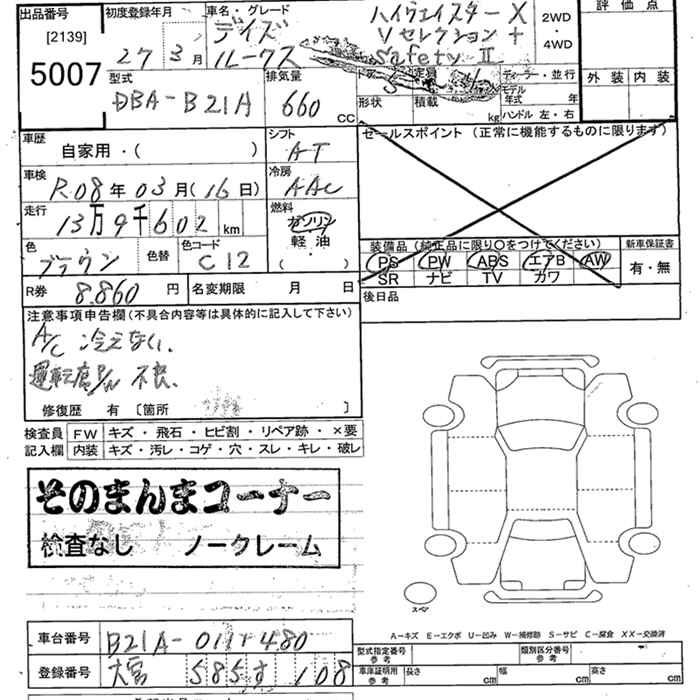 出品番号
[2139]
5007
初度登録年月
27年3月
車名・グレード
デイズ
ルークス
ハイウェイスターX
Vセレクション+
Safety II
2WD
・
4WD
評価点
外装 内装
型式
DBA-B21A
排気量
660 CC
ドア 5
定員
形状
積載 kg
ディーラー・並行
モデル年式 年
ハンドル 左・右
車歴
自家用・( )
シフト
AT
車検
R08年03月(16日)
冷房
AAC
走行
13万9千602 km
燃料
ガソリン
軽油
( ・ )
色
ブラウン
色替
色コード
C12
R券 8.860 円
名変期限 月 日
セールスポイント (正常に機能するものに限ります)
装備品 (純正品に限り○をつけてください)
PS PW ABS エアB AW
SR ナビ TV カワ
新車保証書
有・無
後日品
注意事項申告欄 (不具合内容等は具体的に記入して下さい)
A/C 冷えない.
運転席P/W 不良.
修復歴 有 [箇所 ]
検査員
記入欄
FW キズ・飛石・ヒビ割・リペア跡・×要
内装 キズ・汚レ・コゲ・穴・スレ・キレ・破レ
そのまんまコーナー
検査なし ノークレーム
スペア
A-キズ E-エクボ U-凹み W-補修跡 S-サビ C-腐食 XX-交換済
車台番号 B21A-0111480
登録番号 大宮 585 す 108
型式指定番号
参考
類別区分番号
参考
車庫証明用
参考
長さ cm 幅 cm 高さ cm